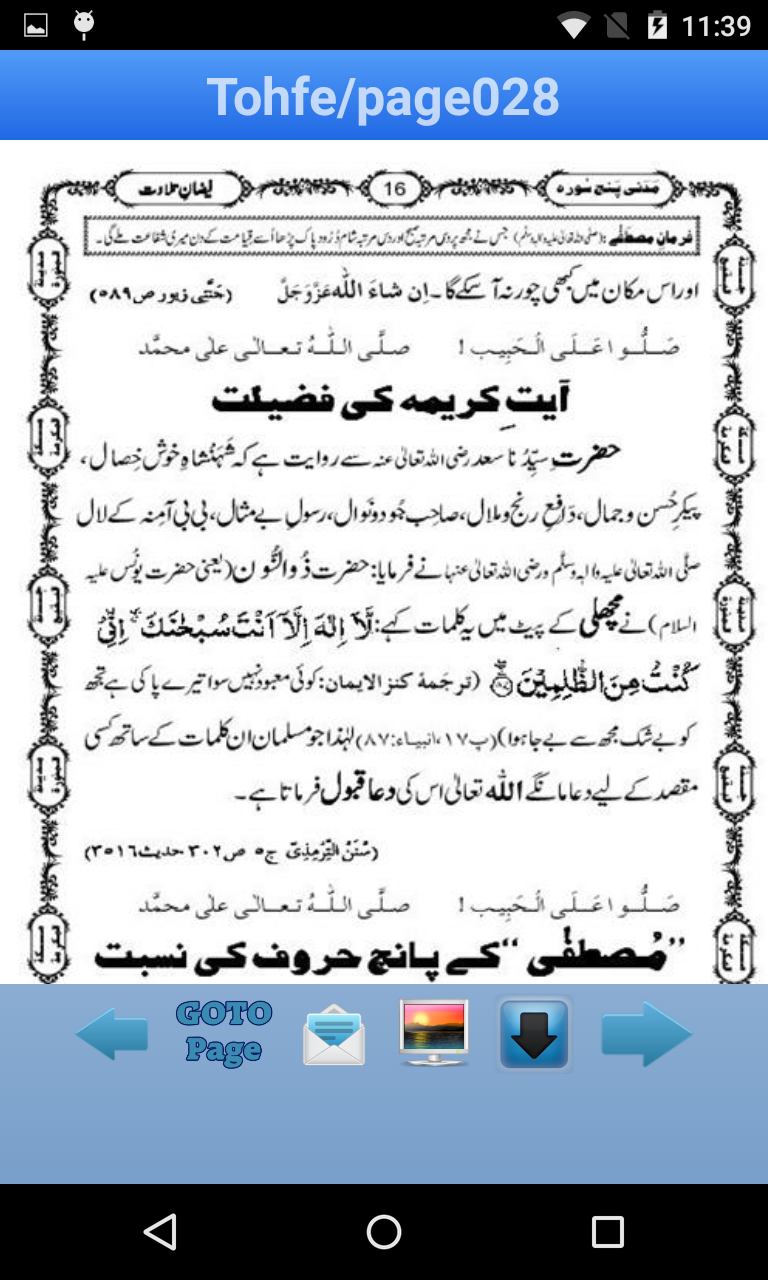 11:39
Tohfe/page028
مَدَنی پنج سُورہ 16 فیضانِ تلاوت
فرمانِ مصطَفٰے : (صلی اللہ تعالیٰ علیہ والہٖ وسلم) جس نے مجھ پر دس مرتبہ صبح اور دس مرتبہ شام دُرُود پاک پڑھا اُسے قیامت کے دن میری شفاعت ملے گی۔
اور اس مکان میں کبھی چور نہ آسکے گا۔ اِن شاءَ اللّٰہ عَزَّوَجَلَّ (جَنَّتی زیور ص۵۸۹)
صَلُّوا عَلَی الْحَبِیب ! صلَّی اللّٰہُ تعالٰی علٰی محمَّد
آیتِ کریمہ کی فضیلت
حضرتِ سیِّدُنا سعد رضی اللہ تعالیٰ عنہ سے روایت ہے کہ شَہَنْشاہِ خوش خِصال ،
پیکرِ حُسن و جمال، دَافِعِ رنج و ملال، صاحِبِ جُود و نَوال، رسولِ بے مثال، بی بی آمِنہ کے لال
صلَّی اللہ تعالیٰ علیہ واٰلہٖ وسلَّم ورضی اللہ تعالیٰ عنہا نے فرمایا: حضرت ذُوالنُّون (یعنی حضرت یونُس علیہ
السلام) نے مچھلی کے پیٹ میں یہ کلمات کہے: لَّاۤ اِلٰهَ اِلَّاۤ اَنْتَ سُبْحٰنَكَ ۖۗ اِنِّیْ
كُنْتُ مِنَ الظّٰلِمِیْنَ ﴿۸۷﴾ (ترجَمۂ کنز الایمان: کوئی معبود نہیں سوا تیرے پاکی ہے تجھ
کو بے شک مجھ سے بے جا ہوا) (پ۱۷،انبیاء:۸۷) لہٰذا جو مسلمان ان کلمات کے ساتھ کسی
مقصد کے لیے دعا مانگے اللّٰہ تعالیٰ اس کی دعا قبول فرماتا ہے۔
(سُنَنُ التِّرْمِذِیّ ج۵ ص۳۰۲ حدیث۳۵۱۶)
صَلُّوا عَلَی الْحَبِیب ! صلَّی اللّٰہُ تعالٰی علٰی محمَّد
”مُصطَفٰی“ کے پانچ حروف کی نسبت
GOTO
Page